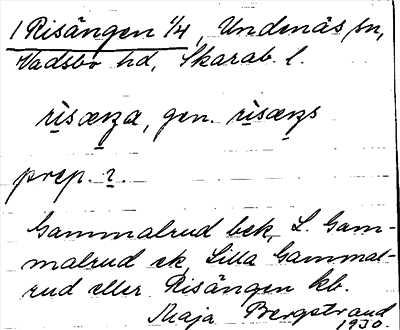 1 Risängen 1/4, Undenäs sn,
Vadsbo hd, Skarab. l.
rìsæŋa, gen. rìsæŋs
prep. 
Gammalrud bek, L. Gam-
malrud ek, Lilla Gammal-
rud eller Risängen kb.
Maja Bergstrand
1930.